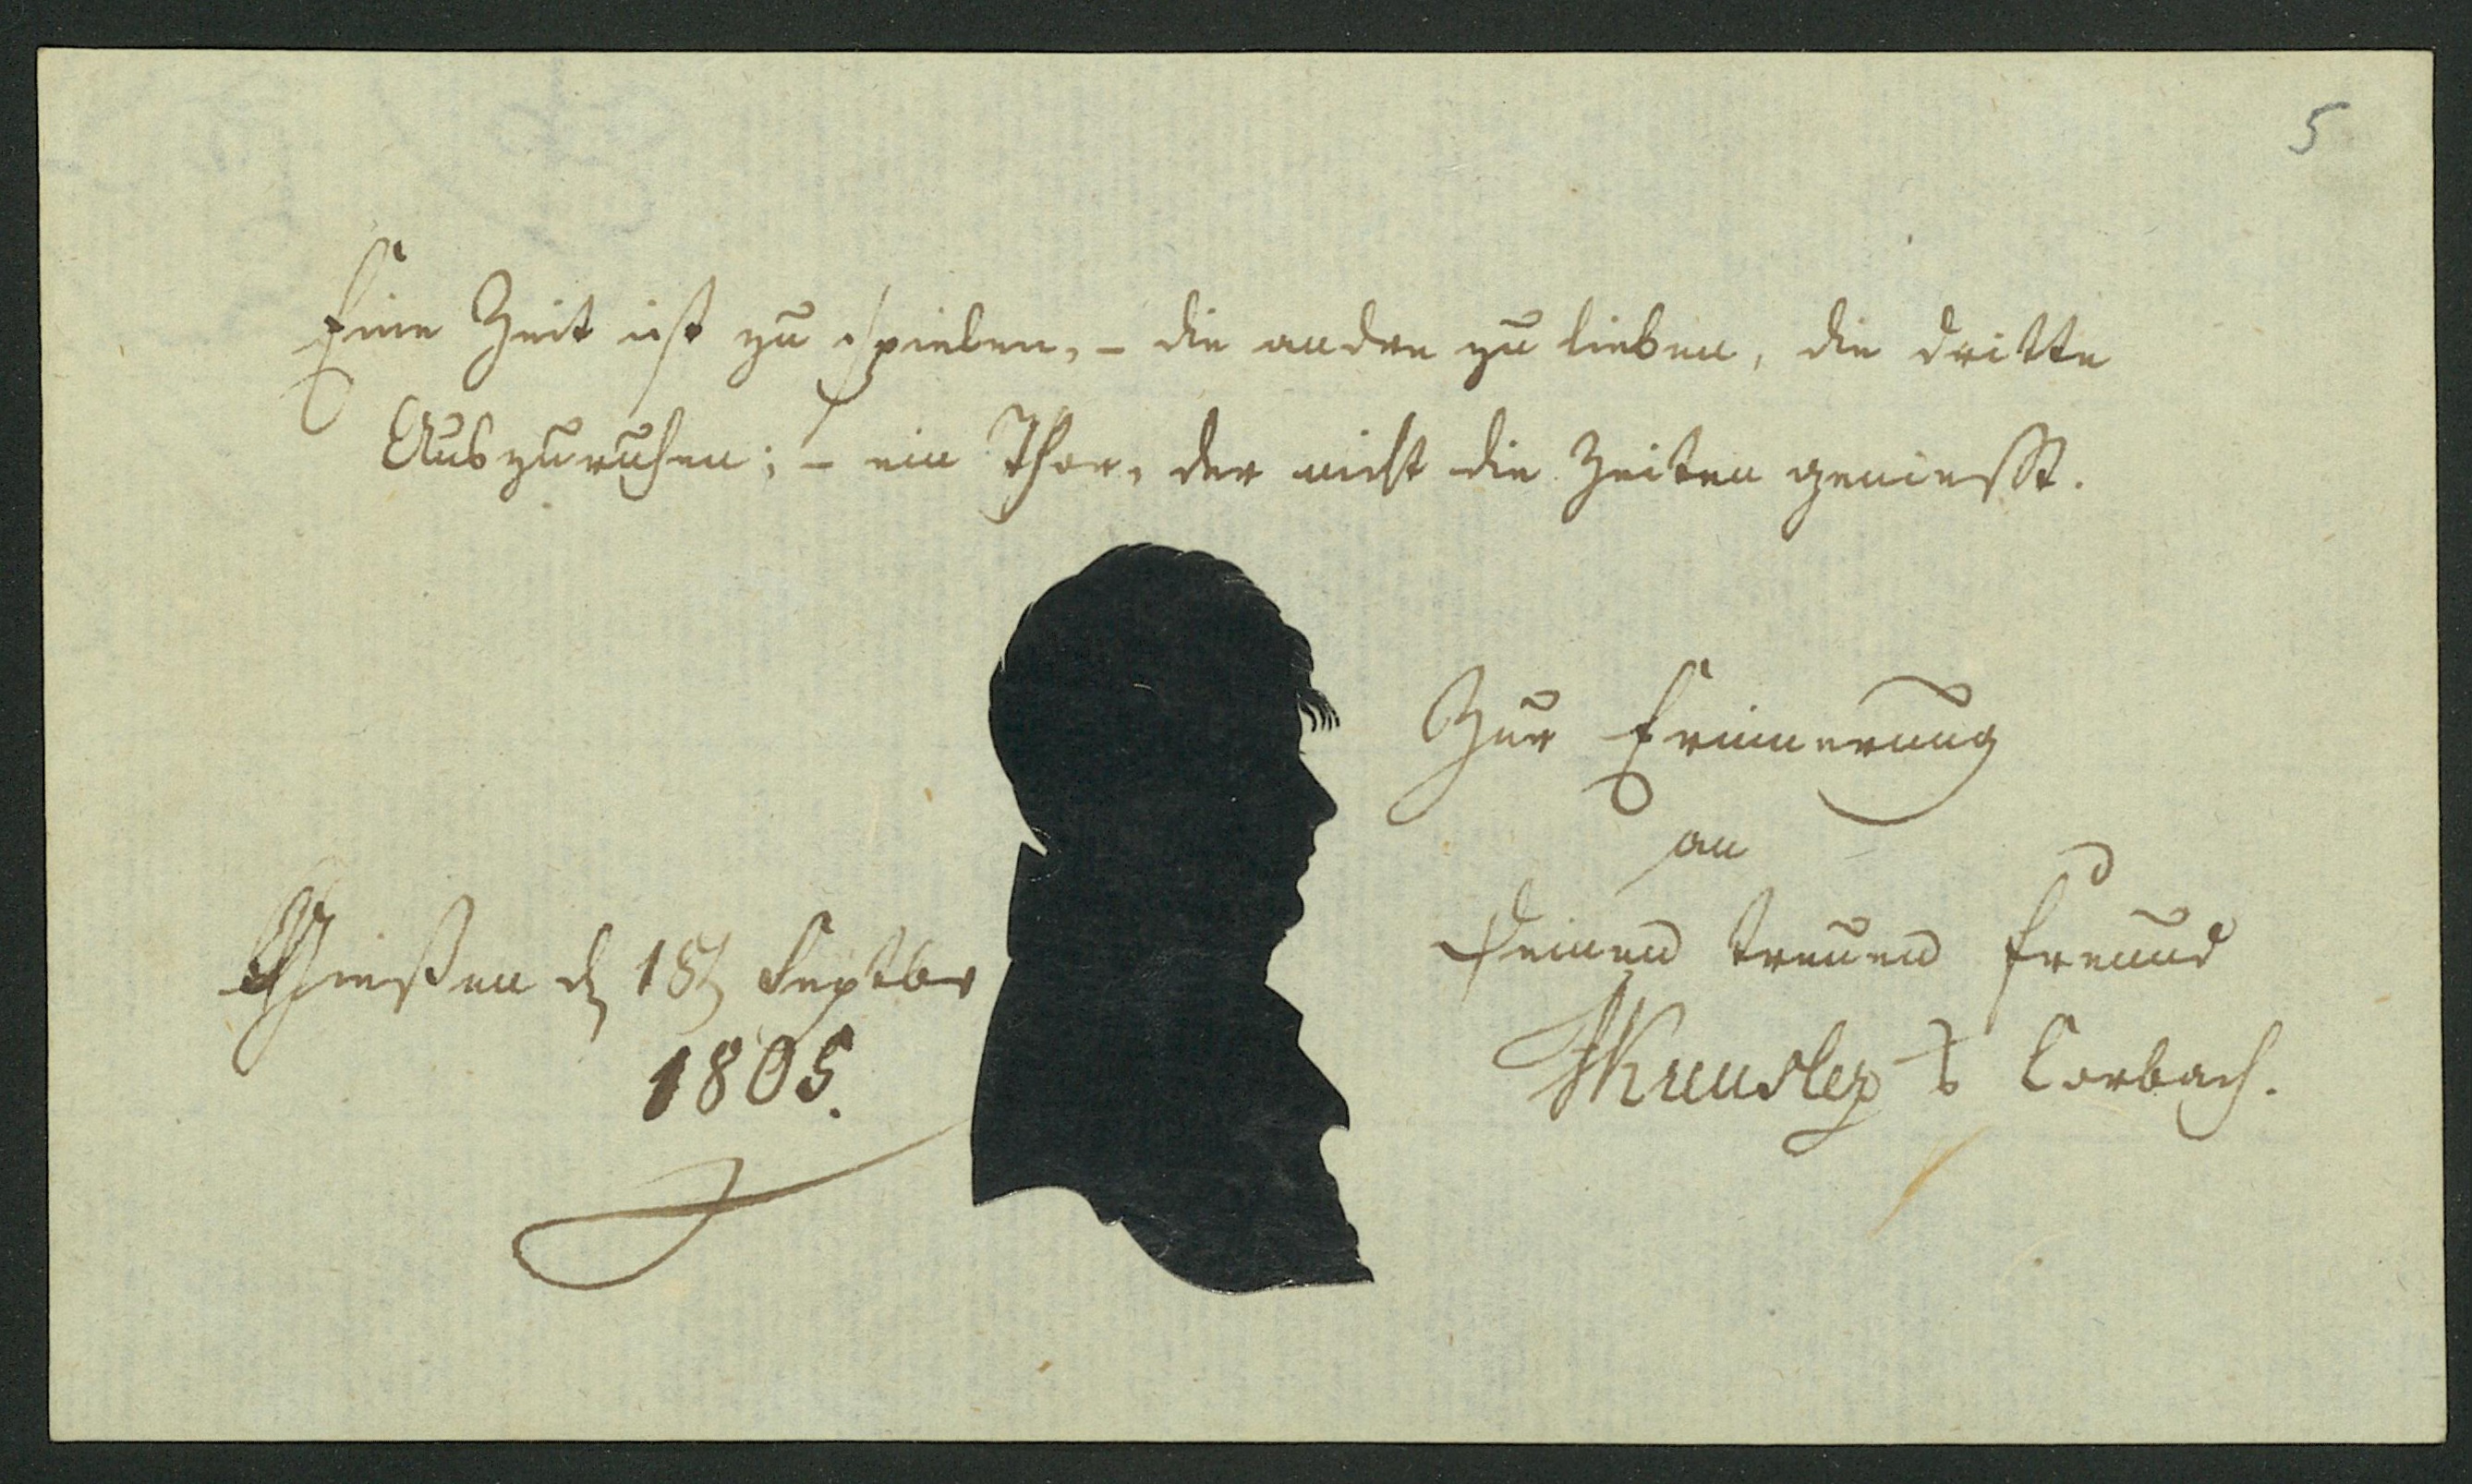 5
Eine Zeit ist zu spielen, – die andre zu lieben, die dritte
Auszuruhen; – ein Thor, der nicht die Zeiten geniesst.
Zur Erinnerung
an
Deinen treuen Freund
Kreusler Corbach.
Giesßen d 18 Septbr
1805.